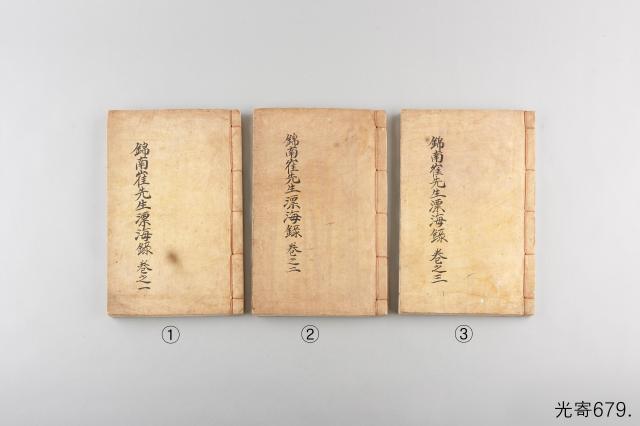 錦南崔先生漂海錄 卷之一
錦南崔先生漂海錄 卷之二
錦南崔先生漂海錄 卷之三
① ② ③
光寄679.